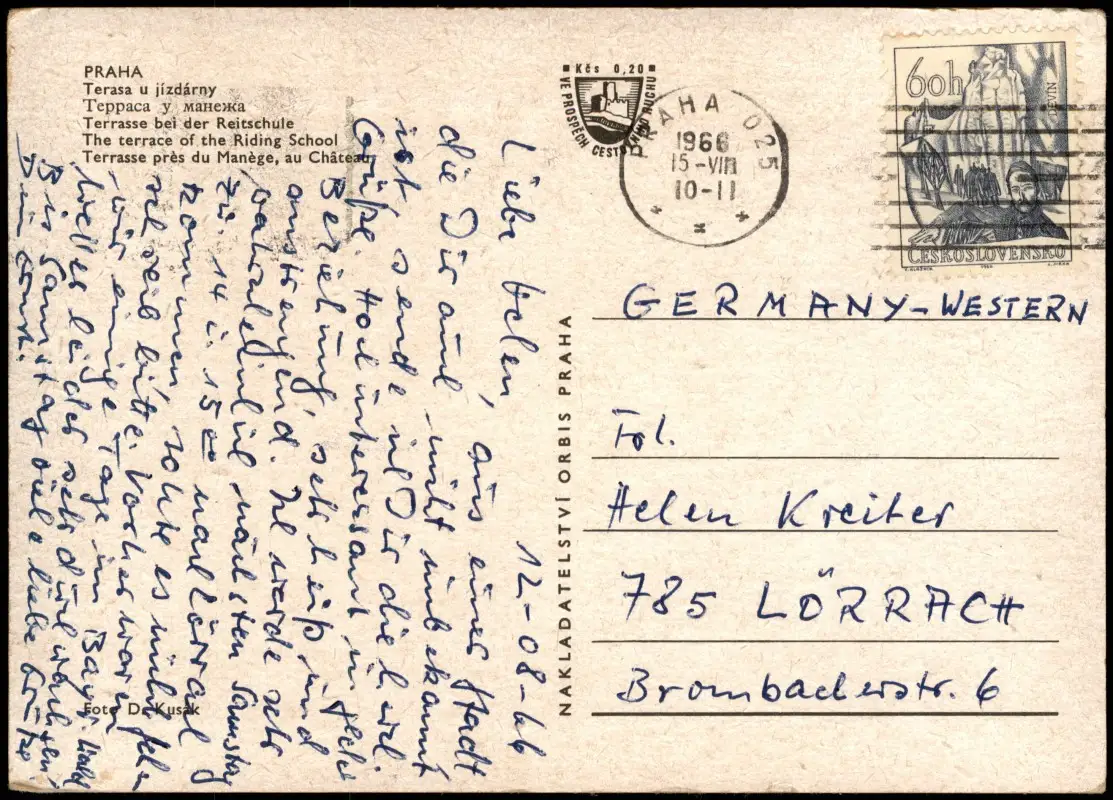 PRAHA
Terasa u jízdárny
Терраса у манежа
Terrasse bei der Reitschule
The terrace of the Riding School
Terrasse près du Manège, au Château
Kčs 0,20
VE PROSPĚCH CESTOVNÍHO RUCHU
PRAHA 025
1966
15-VIII
10-11
60h
DEVÍN
ČESKOSLOVENSKO
12-08-66
Liebe Helen,
aus einer Stadt
die Dir auch nicht unbekannt
ist sende ich Dir die herzl.
Grüße. Hochinteressant in jeder
Beziehung, sehr heiß und
anstrengend. Ich werde
wahrscheinlich nächsten Samstag
zw. 14 u. 15 00 nach Lörrach
kommen, sollte es nicht gehen
bitte. Vorher waren
wir einige Tage im Bayr.
Wetter leider sehr
Bis Samstag viele liebe Grüße
Dein Ernst.
NAKLADATELSTVÍ ORBIS PRAHA
GERMANY-WESTERN
Frl.
Helen Kreiter
785 LÖRRACH
Brombacherstr. 6
Foto Dr. Kusák